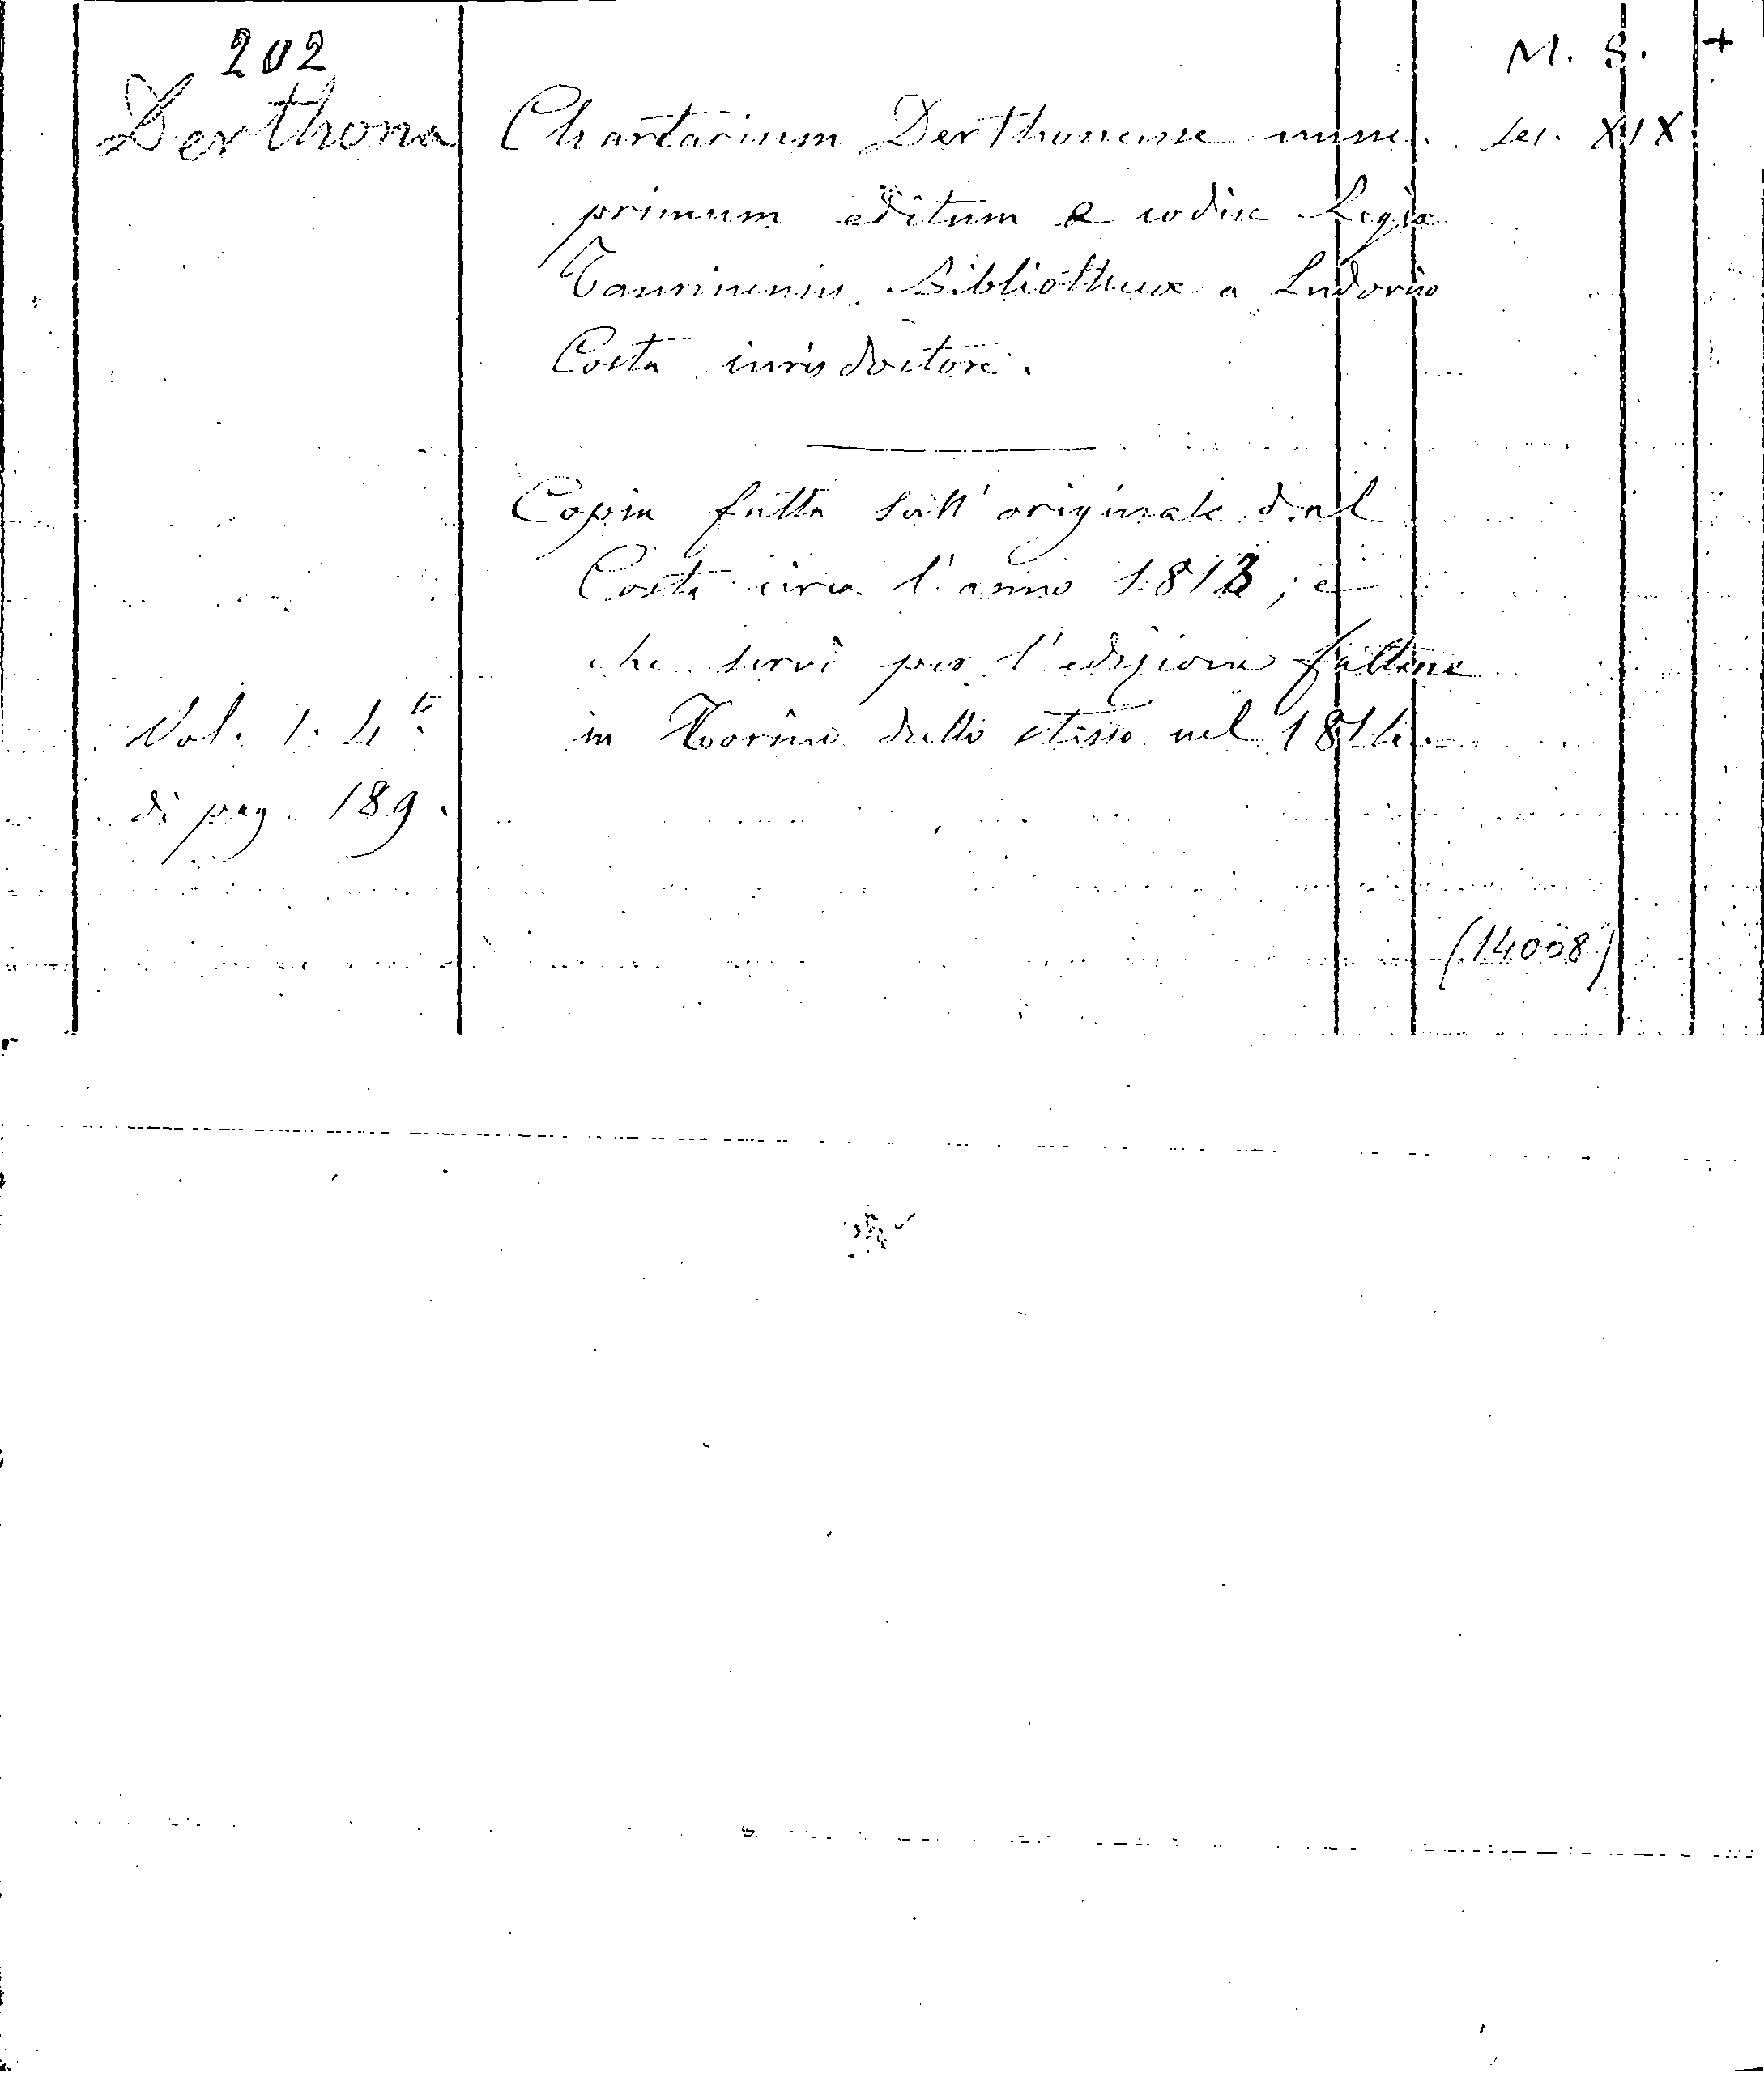 202
M. S. +
Derthona
Chartarium Derthonense nunc
sec. XIX
primum editum e codice Regiæ
Taurinensis Bibliothecæ a Ludovico
Costa iurisdoctore.
Copia fatta sull' originale dal
Costa circa l'anno 1813; e
che servì per l'edizione fattane
in Torino dallo stesso nel 1814.
Vol. 1. 4to.
di pag. 189.
(14008)